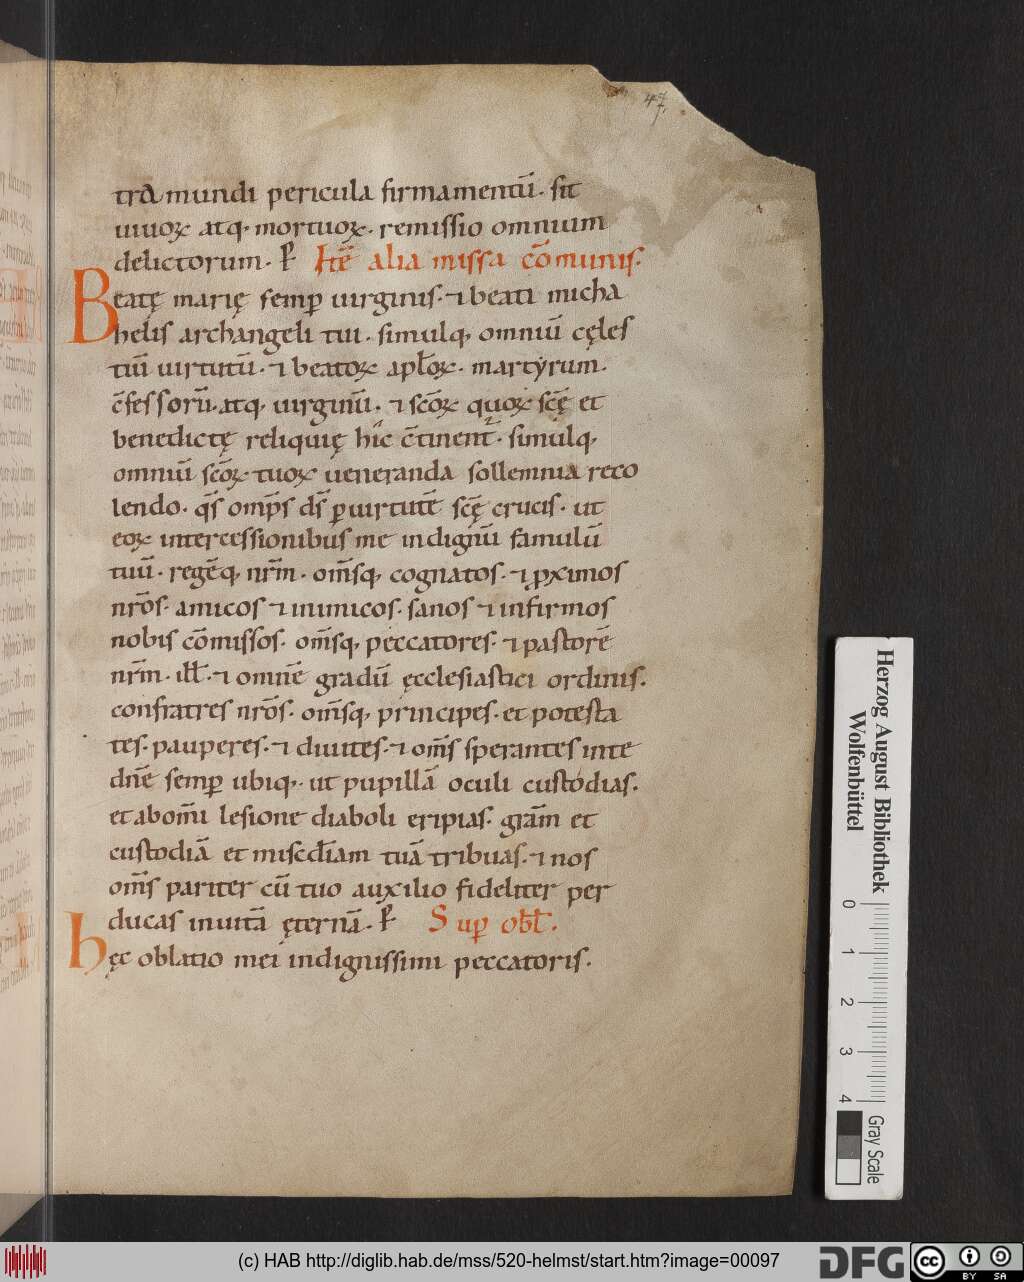 47,
tra mundi pericula firmamentū· sit
uiuoꝝ atq· mortuoꝝ· remissio omnium
delictorum· P̄ Itē alia missa cōmunis·
Beatę marię semꝑ uirginis· ⁊ beati micha
helis archangeli tui· simulq, omniū cęles
tiū uirtutū· ⁊ beatoꝝ apl̄oꝝ· martyrum·
c̄fessorū· atq, uirginū· ⁊ scōꝝ quoꝝ scę̄ et
benedictę reliquię hic c̄tinent᷑· simulq,
omniū scōꝝ tuoꝝ ueneranda sollemnia reco
lendo· qs̄ omp̄s ds̄ ꝑ uirtutē scę̄ crucis· ut
eoꝝ intercessionibus me indignū famulū
tuū· regēq, nr̄m· om̄sq, cognatos· ⁊ ꝓximos
nrōs· amicos ⁊ inimicos· sanos ⁊ infirmos
nobis cōmissos· om̄sq, peccatores· ⁊ pastorē
nr̄m· ill̄· ⁊ omnē gradū ęcclesiastici ordinis·
confratres nrōs· om̄sq, principes· et potesta
tes· pauperes· ⁊ diuites· ⁊ om̄s sperantes in te
dn̄e semꝑ ubiq,· ut pupillā oculi custodias·
et ab om̄i lesione diaboli eripias· grām et
custodiā et miscd̄iam tuā tribuas· ⁊ nos
om̄s pariter cū tuo auxilio fideliter per
ducas in uitā ęternā· P̄ Suꝑ obl̄·
hęc oblatio mei indignissimi peccatoris·
Herzog August Bibliothek
Wolfenbüttel
0 1 2 3 4
Gray Scale
(c) HAB http://diglib.hab.de/mss/520-helmst/start.htm?image=00097
DFG
cc BY SA